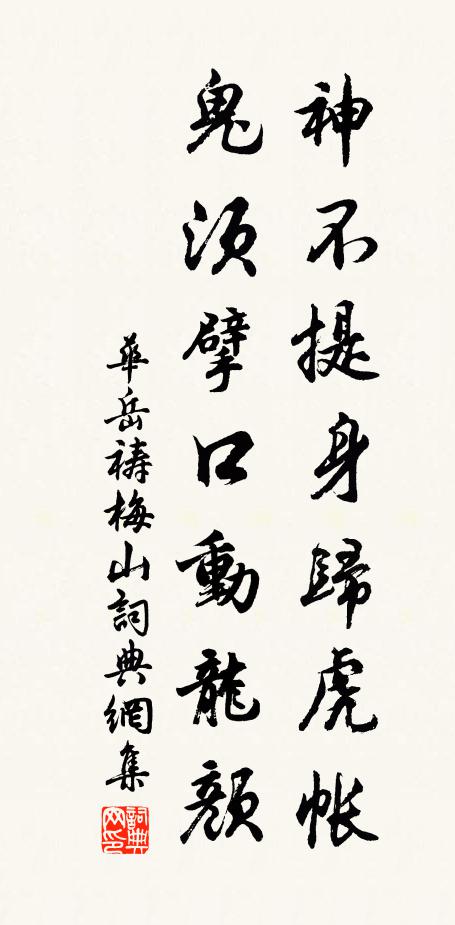 神不提身歸虎帳
鬼須擘口動龍顏
華岳禱梅山詞典網集
詞典
网印